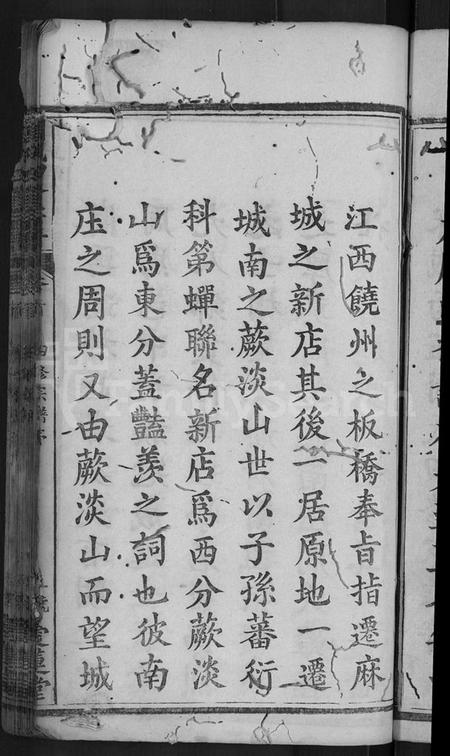 江西饒州之板橋奉旨指遷麻
城之新店其後一居原地一遷
城南之蕨淡山世以子孫蕃衍
科第蟬聯名新店爲西分蕨淡
山爲東分蓋豔羨之詞也彼南
庄之周則又由蕨淡山而望城
四修宗譜序
FamilySearch